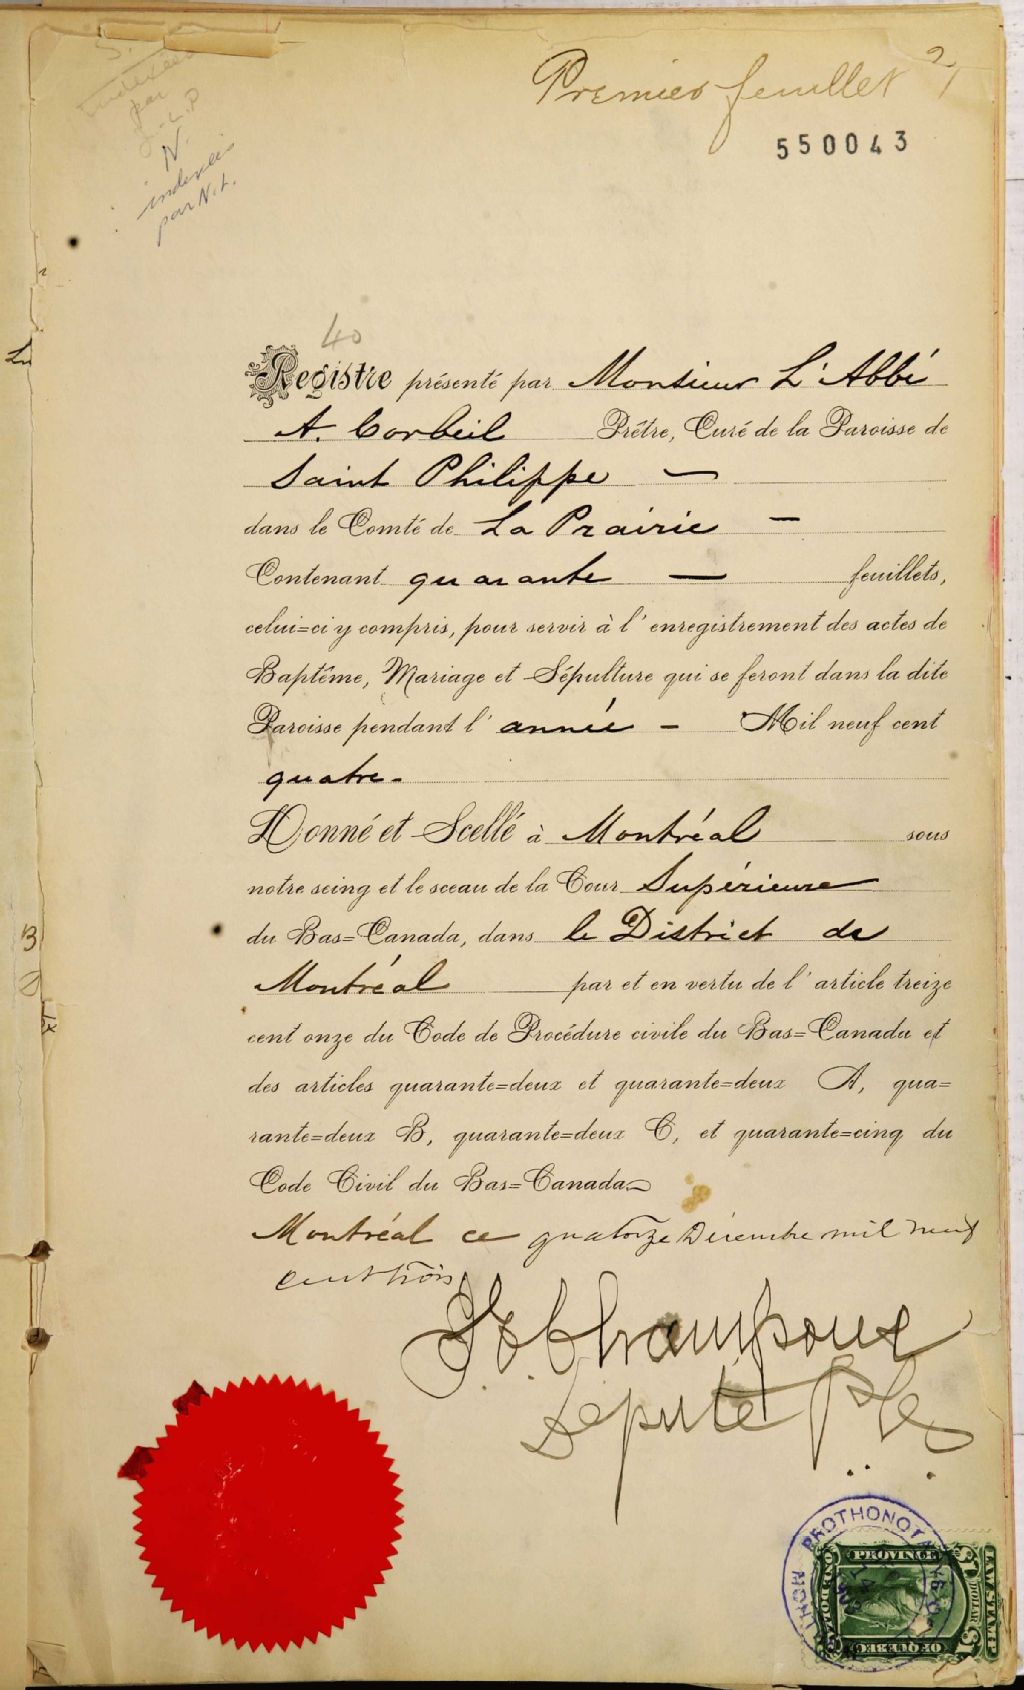 Premier feuillet
550043
indexée
par
N.
indexée
par N.L.
40
Registre présenté par Monsieur L'Abbé
A. Corbeil Prêtre, Curé de la Paroisse de
Saint Philippe —
dans le Comté de La Prairie —
Contenant quarante — feuillets,
celui=ci y compris, pour servir à l'enregistrement des actes de
Baptême, Mariage et Sépulture qui se feront dans la dite
Paroisse pendant l'année — Mil neuf cent
quatre.
Donné et Scellé à Montréal sous
notre seing et le sceau de la Cour Supérieure
du Bas=Canada, dans le District de
Montréal par et en vertu de l'article treize
cent onze du Code de Procédure civile du Bas=Canada et
des articles quarante=deux et quarante=deux A, qua=
rante=deux B, quarante=deux C, et quarante=cinq du
Code Civil du Bas=Canada
Montréal ce quatorze Décembre mil neuf
cent trois
Champoux
Député
PROTHONOTA
MONT
LAW STAMP
$1 DOLLAR $1
PROVINCE
OF QUEBEC